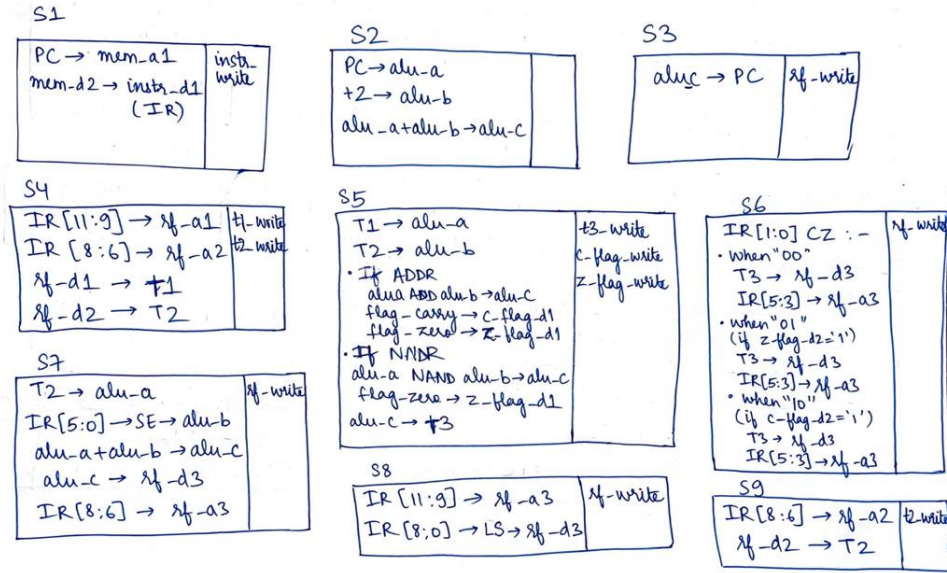 S1
PC → mem_a1
mem-d2 → instr_d1
(IR)
instr_
write
S2
PC → alu-a
+2 → alu-b
alu_a+alu-b → alu-c
S3
aluc → PC
rf-write
S4
IR[11:9] → rf_a1
IR [8:6] → rf_a2
rf-d1 → T1
rf-d2 → T2
t1-write
t2_write
S5
T1 → alu-a
T2 → alu-b
• If ADDR
alua ADD alu-b → alu-c
flag-carry → c-flag_d1
flag-zero → z-flag_d1
• If NNDR
alu-a NAND alu-b → alu-c
flag-zero → z-flag_d1
alu-c → t3
t3_write
c-flag_write
z-flag_write
S6
IR[1:0] CZ :-
• when "00"
T3 → rf-d3
IR[5:3] → rf-a3
• when "01"
(if z-flag-d2='1')
T3 → rf-d3
IR[5:3] → rf-a3
• when "10"
(if c-flag-d2='1')
T3 → rf-d3
IR[5:3] → rf-a3
rf-write
S7
T2 → alu-a
IR[5:0] → SE → alu-b
alu-a+alu-b → alu-c
alu-c → rf-d3
IR[8:6] → rf-a3
rf-write
S8
IR [11:9] → rf-a3
IR[8:0] → LS → rf-d3
rf-write
S9
IR[8:6] → rf-a2
rf-d2 → T2
t2-write